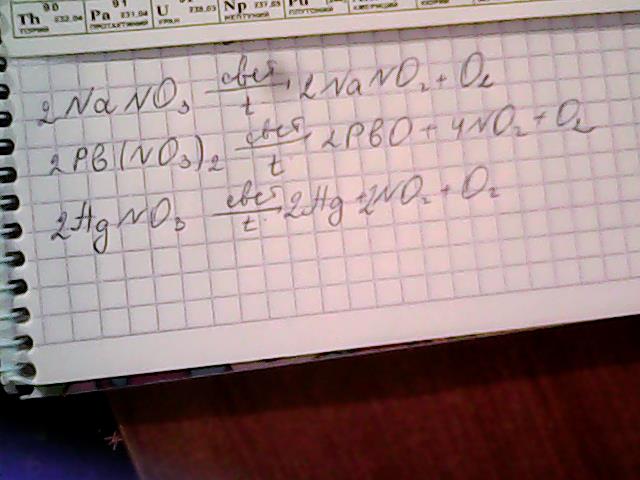 Th 90 232,04 ТОРИЙ Pa 91 231,04 ПРОТАКТИНИЙ U 238,03 УРАН Np 237,05 НЕПТУНИЙ Pu ПЛУТОНИЙ
2NaNO3 свет t 2NaNO2 + O2
2PB(NO3)2 свет t 2PBO + 4NO2 + O2
2HgNO3 свет t 2Hg + 2NO2 + O2